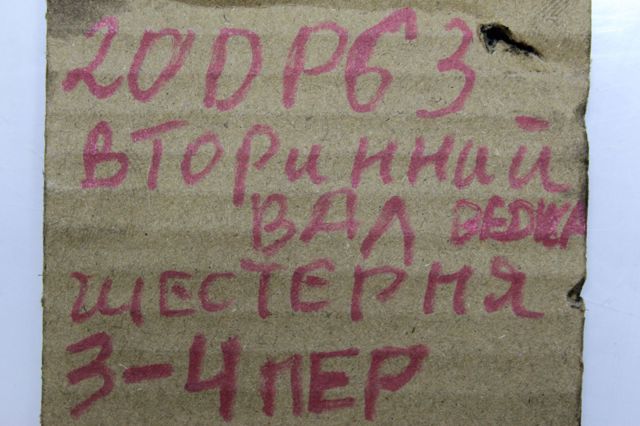 20DP63
ВТОРИННИЙ
ВАЛ
ШЕСТЕРНЯ
3-4 ПЕР